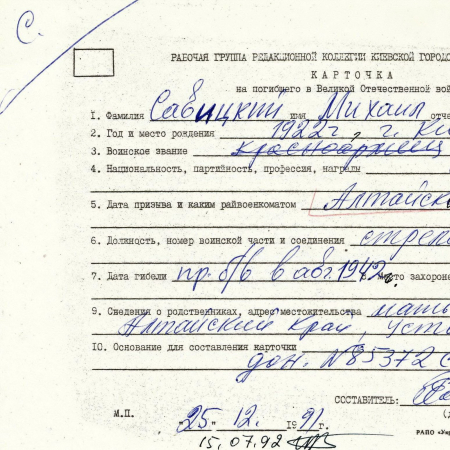 С.
РАБОЧАЯ ГРУППА РЕДАКЦИОННОЙ КОЛЛЕГИИ КИЕВСКОЙ ГОРОДС
КАРТОЧКА
на погибшего в Великой Отечественной вой
1. Фамилия Савицкий имя Михаил отче
2. Год и место рождения 1922г., г. Ки
3. Воинское звание красноармеец
4. Национальность, партийность, профессия, награды
5. Дата призыва и каким райвоенкоматом Алтайск
6. Должность, номер воинской части и соединения стрело
7. Дата гибели пр. б/в в авг. 1942г. 8. Место захороне
9. Сведения о родственниках, адрес местожительства мать
Алтайский край, Уст
10. Основание для составления карточки
дон. №85372
СОСТАВИТЕЛЬ:
М.П. "25" 12. 1991
РАПО «Укр
15.07.92